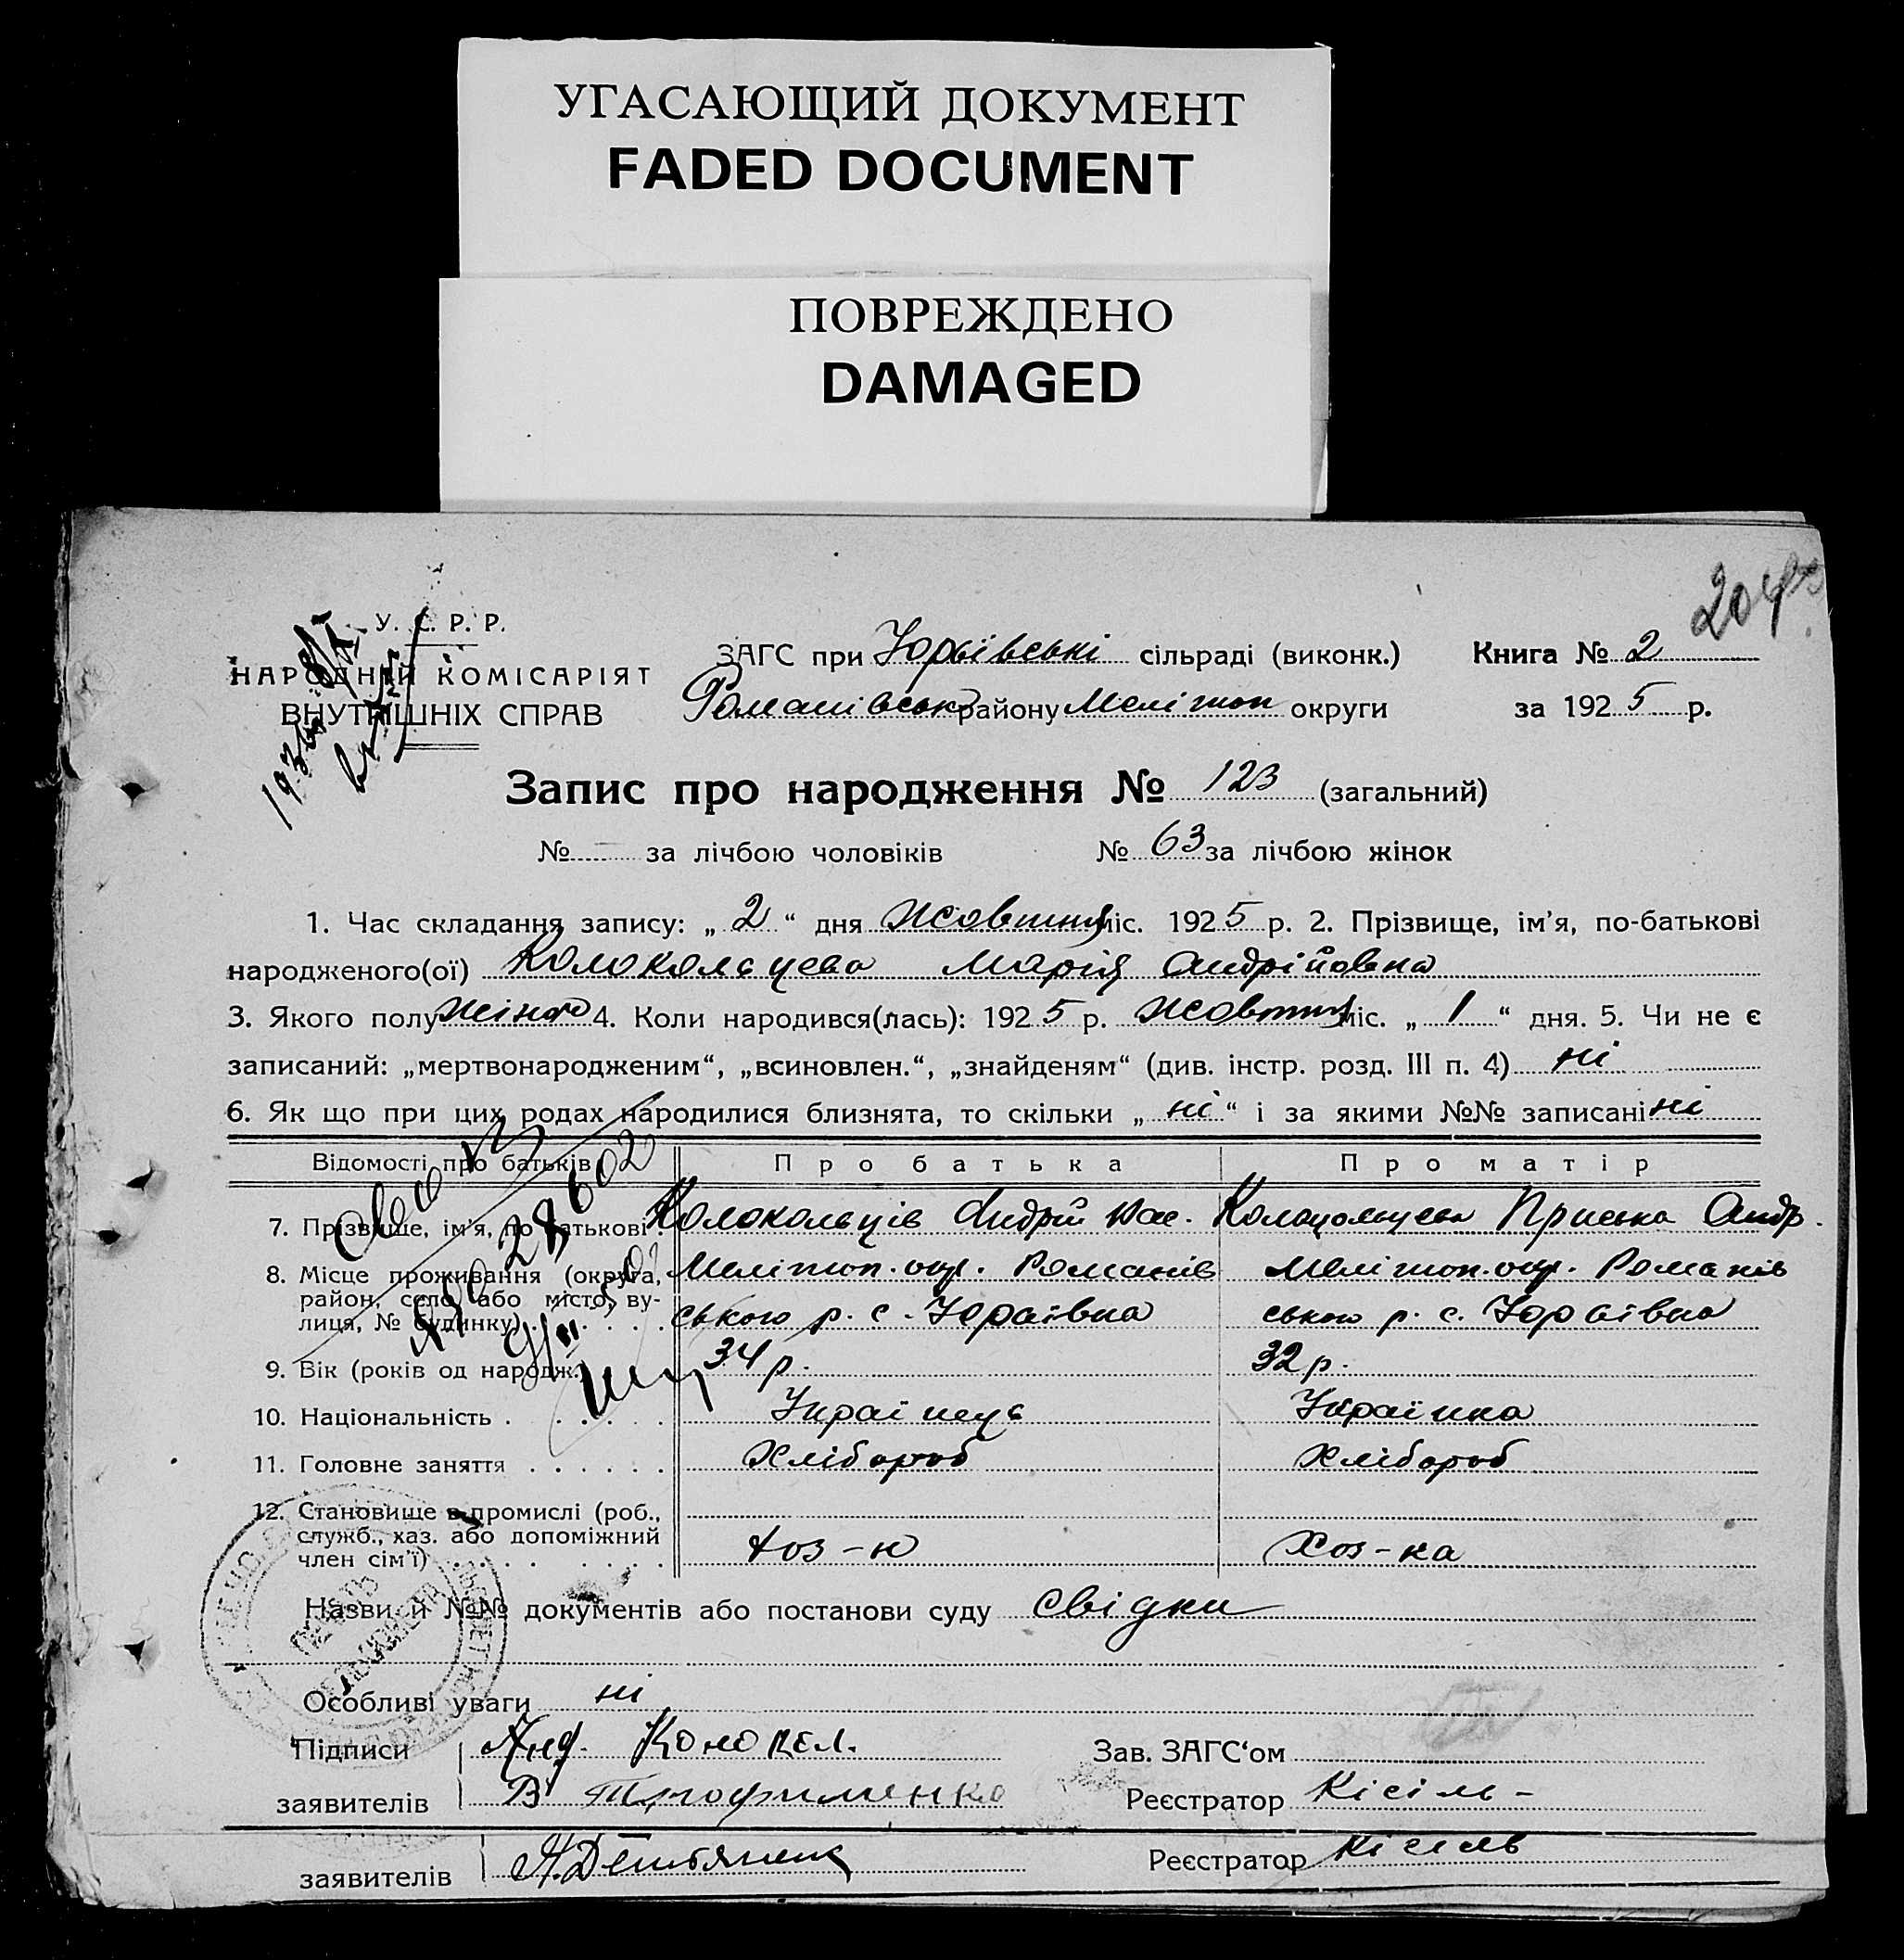 УГАСАЮЩИЙ ДОКУМЕНТ
FADED DOCUMENT
ПОВРЕЖДЕНО
DAMAGED
204
У. С. Р. Р.
НАРОДНИЙ КОМІСАРІЯТ
ВНУТРІШНІХ СПРАВ
ЗАГС при Юрьївські сільраді (виконк.) Книга № 2
Романівськ району Мелітоп округи за 1925 р.
Запис про народження № 123 (загальний)
№ — за лічбою чоловіків № 63 за лічбою жінок
1. Час складання запису: „ 2 “ дня Жовтня міс. 1925 р. 2. Прізвище, ім'я, по-батькові
народженого(ої) Колокольцева Марія Андрійовна
3. Якого полу жіноч 4. Коли народився(лась): 1925 р. Жовтня міс. „ 1 “ дня. 5. Чи не є
записаний: „мертвонародженим“, „всиновлен.“, „знайденям“ (див. інстр. розд. III п. 4) ні
6. Як що при цих родах народилися близнята, то скільки „ ні “ і за якими №№ записані ні
Відомості про батьків Про батька Про матір
7. Прізвище, ім'я, по батькові. Колокольців Андрій Вас. Колокольцева Приська Андр.
8. Місце проживання (округа, Мелітоп. окр. Романів Мелітоп. окр. Романів
район, село або місто, ву-
лиця, № будинку) ського р. с. Юраївка ського р. с. Юраївка
9. Вік (років од народж.) 34 р. 32 р.
10. Національність . . . . . . Українець Українка
11. Головне заняття . . . . . . Хлібороб Хлібороб
12. Становище в промислі (роб.,
служб., хаз. або допоміжний
член сім'ї) . . . . . . Хоз-н Хоз-ка
Назви й №№ документів або постанови суду Свідки
Особливі уваги ні
Підписи Анд. Колокол. Зав. ЗАГС'ом
заявителів В Трофименко Реєстратор Кісіль -
заявителів Реєстратор Кісіль